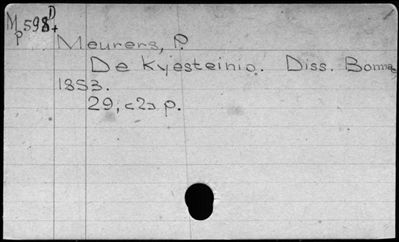 M D
p598+
Meurers, P.
De Kyesteinio. Diss. Bonnae
1853.
29, c2ɔ p.